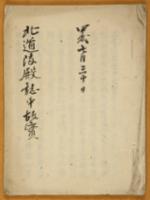 甲戌七月三十日
北道陵殿誌中故實